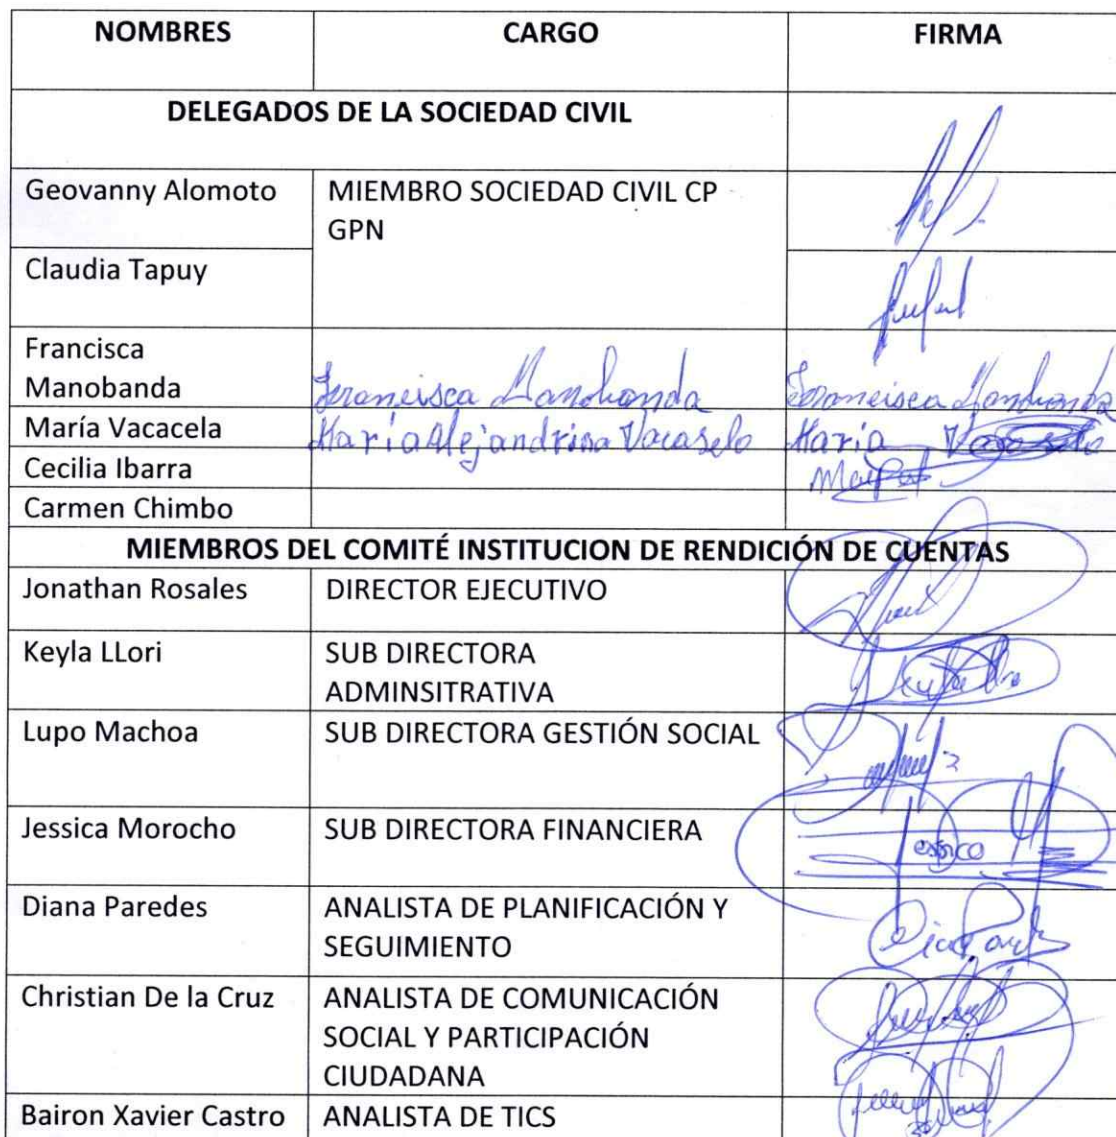 NOMBRES CARGO FIRMA
DELEGADOS DE LA SOCIEDAD CIVIL
Geovanny Alomoto MIEMBRO SOCIEDAD CIVIL CP
GPN
Claudia Tapuy
Francisca
Manobanda Francisca Manobanda Francisca Manobanda
María Vacacela María Alejandrina Vacasela María
Cecilia Ibarra
Carmen Chimbo
MIEMBROS DEL COMITÉ INSTITUCION DE RENDICIÓN DE CUENTAS
Jonathan Rosales DIRECTOR EJECUTIVO
Keyla LLori SUB DIRECTORA
ADMINSITRATIVA
Lupo Machoa SUB DIRECTORA GESTIÓN SOCIAL
Jessica Morocho SUB DIRECTORA FINANCIERA
Diana Paredes ANALISTA DE PLANIFICACIÓN Y
SEGUIMIENTO
Christian De la Cruz ANALISTA DE COMUNICACIÓN
SOCIAL Y PARTICIPACIÓN
CIUDADANA
Bairon Xavier Castro ANALISTA DE TICS